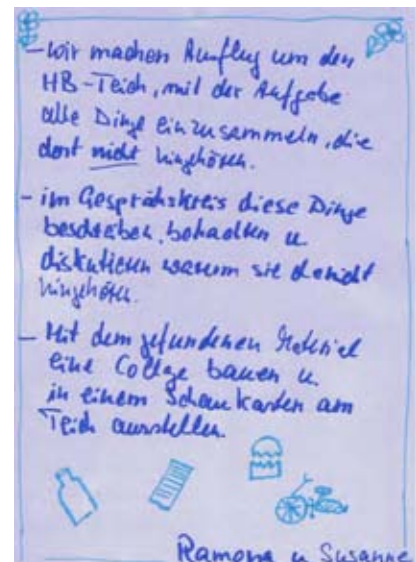 - wir machen Ausflug um den
HB-Teich, mit der Aufgabe
alle Dinge einzusammeln, die
dort nicht hingehören.
- im Gesprächskreis diese Dinge
beschreiben, betrachten u.
diskutieren warum sie da nicht
hingehören.
- Mit dem gefundenen Material
eine Collage bauen u.
in einem Schaukasten am
Teich ausstellen.
Ramona u Susanne